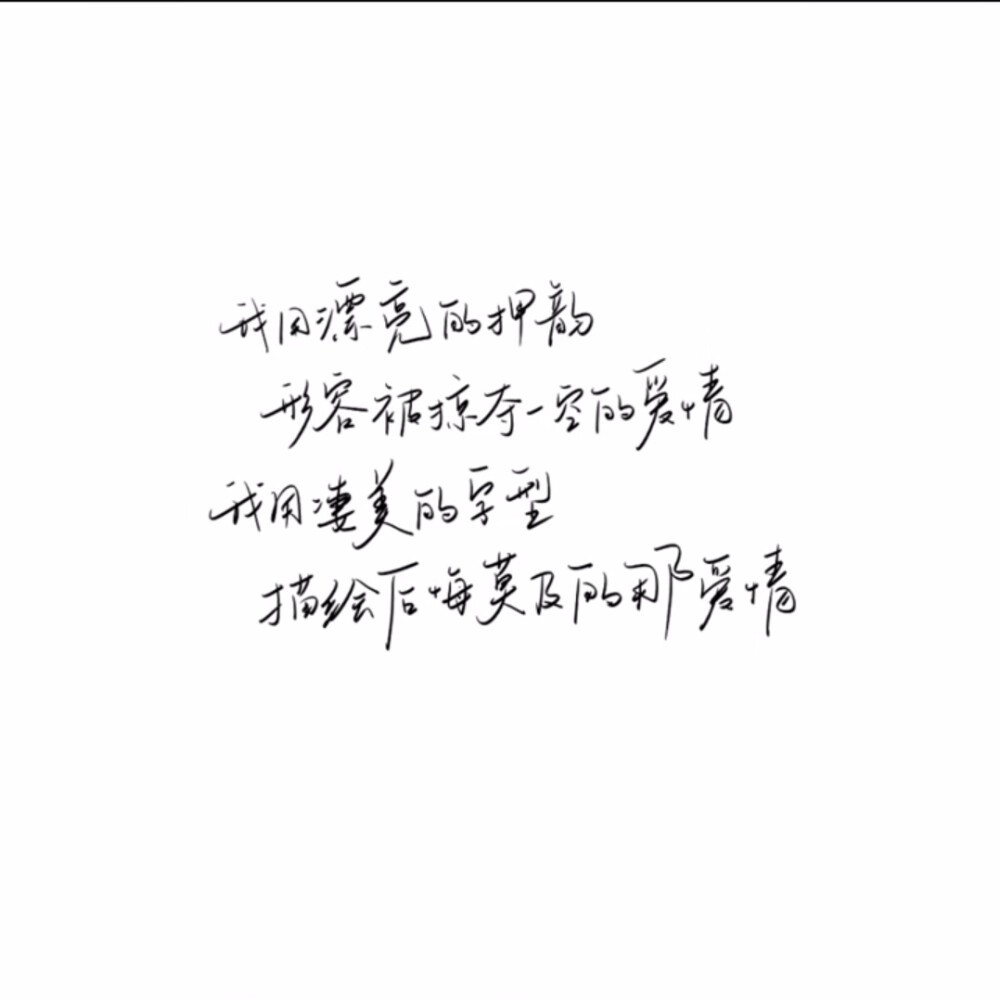 我用漂亮的押韵
形容被掠夺一空的爱情
我用凄美的字型
描绘后悔莫及的那爱情